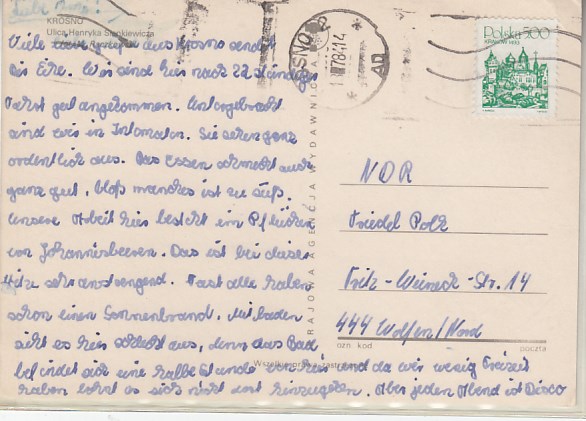 Liebe
KROSNO
Ulica Henryka Sienkiewicza
Viele Grüße aus Krosno sendet
Wir sind hier nach 22 stündiger
Fahrt gut angekommen. Untergebracht
sind wir in Internaten. Sie sehen ganz
ordentlich aus. Das Essen schmeckt auch
ganz gut, bloß manches ist zu süß.
Unsere Arbeit hier besteht im Pflücken
von Johannisbeeren. Das ist bei dieser
Hitze sehr anstrengend. Fast alle haben
schon einen Sonnenbrand. Mit baden
sieht es hier schlecht aus, denn das Bad
befindet sich eine halbe Stunde von hier und da wir wenig Freizeit
haben lohnt es sich nicht erst hinzugehen. Aber jeden Abend ist Disco
KRAJOWA AGENCJA WYDAWNICZA
Polska 5,00
NDR
Friedel Polz
Fritz-Weineck-Str. 14
444 Wolfen/Nord
ozn. kod.
poczta